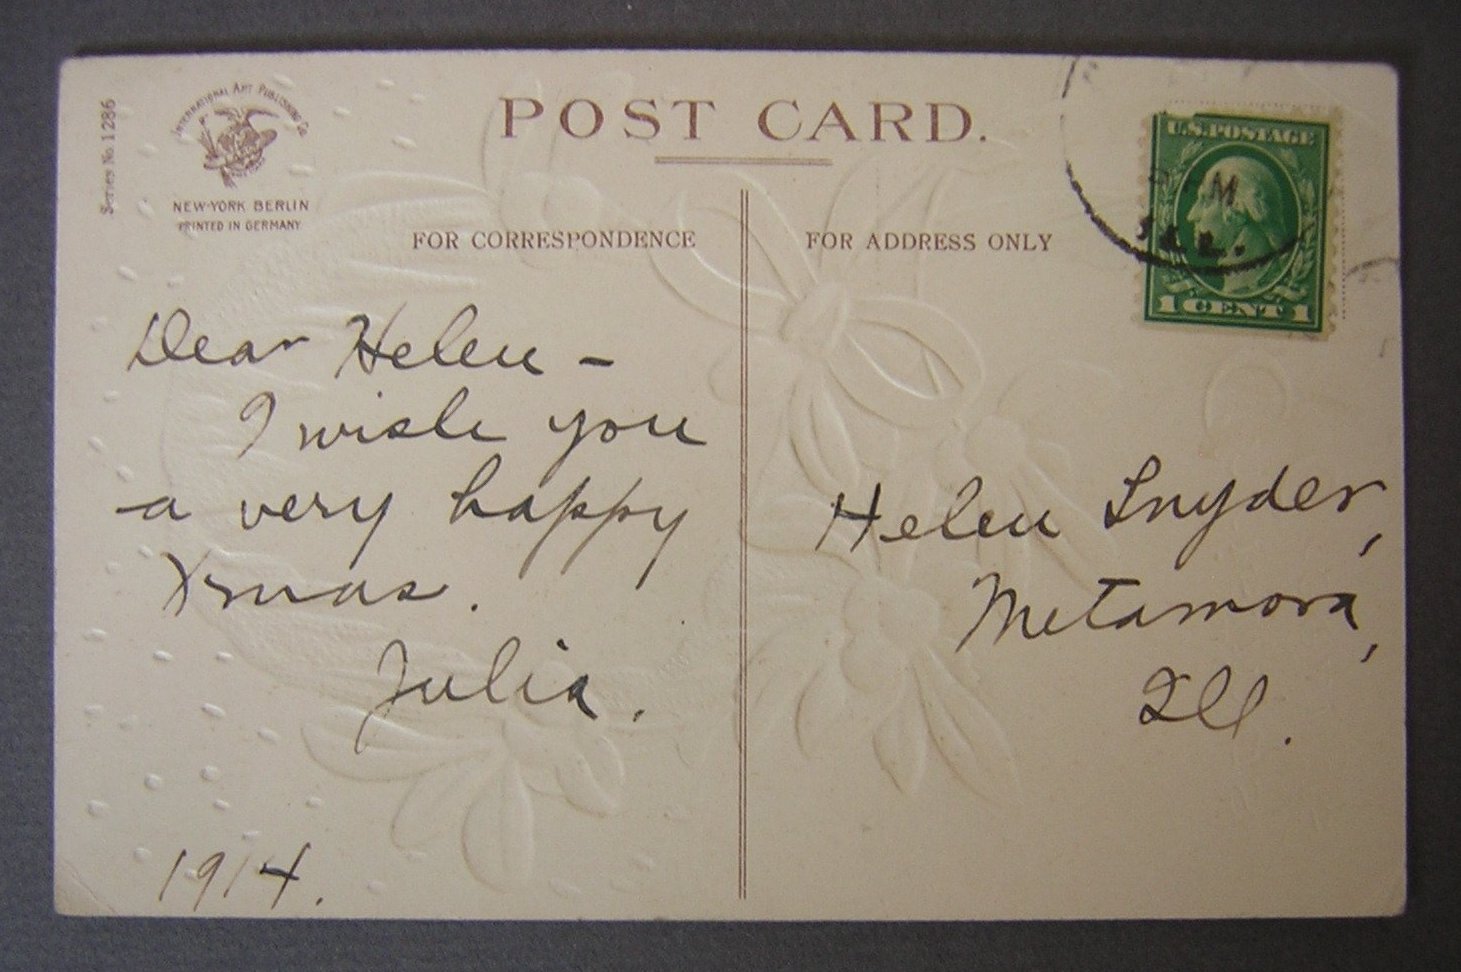 Series No. 1286
INTERNATIONAL ART PUBLISHING Co.
NEW-YORK BERLIN
PRINTED IN GERMANY
POST CARD.
FOR CORRESPONDENCE
FOR ADDRESS ONLY
U.S. POSTAGE
1 CENT 1
M
ILL.
Dear Helen –
I wish you
a very happy
Xmas.
Julia.
1914.
Helen Snyder,
Metamora,
Ill.